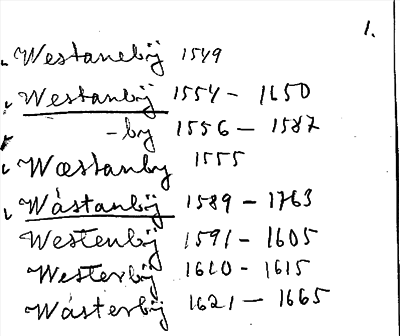 1.
Westanebÿ 1549
Westanbÿ 1554 - 1650
-by 1556 - 1587
Wæstanby 1555
Wästanbÿ 1589 - 1763
Westenbÿ 1591 - 1605
Westerbÿ 1610 - 1615
Wästerbÿ 1621 - 1665